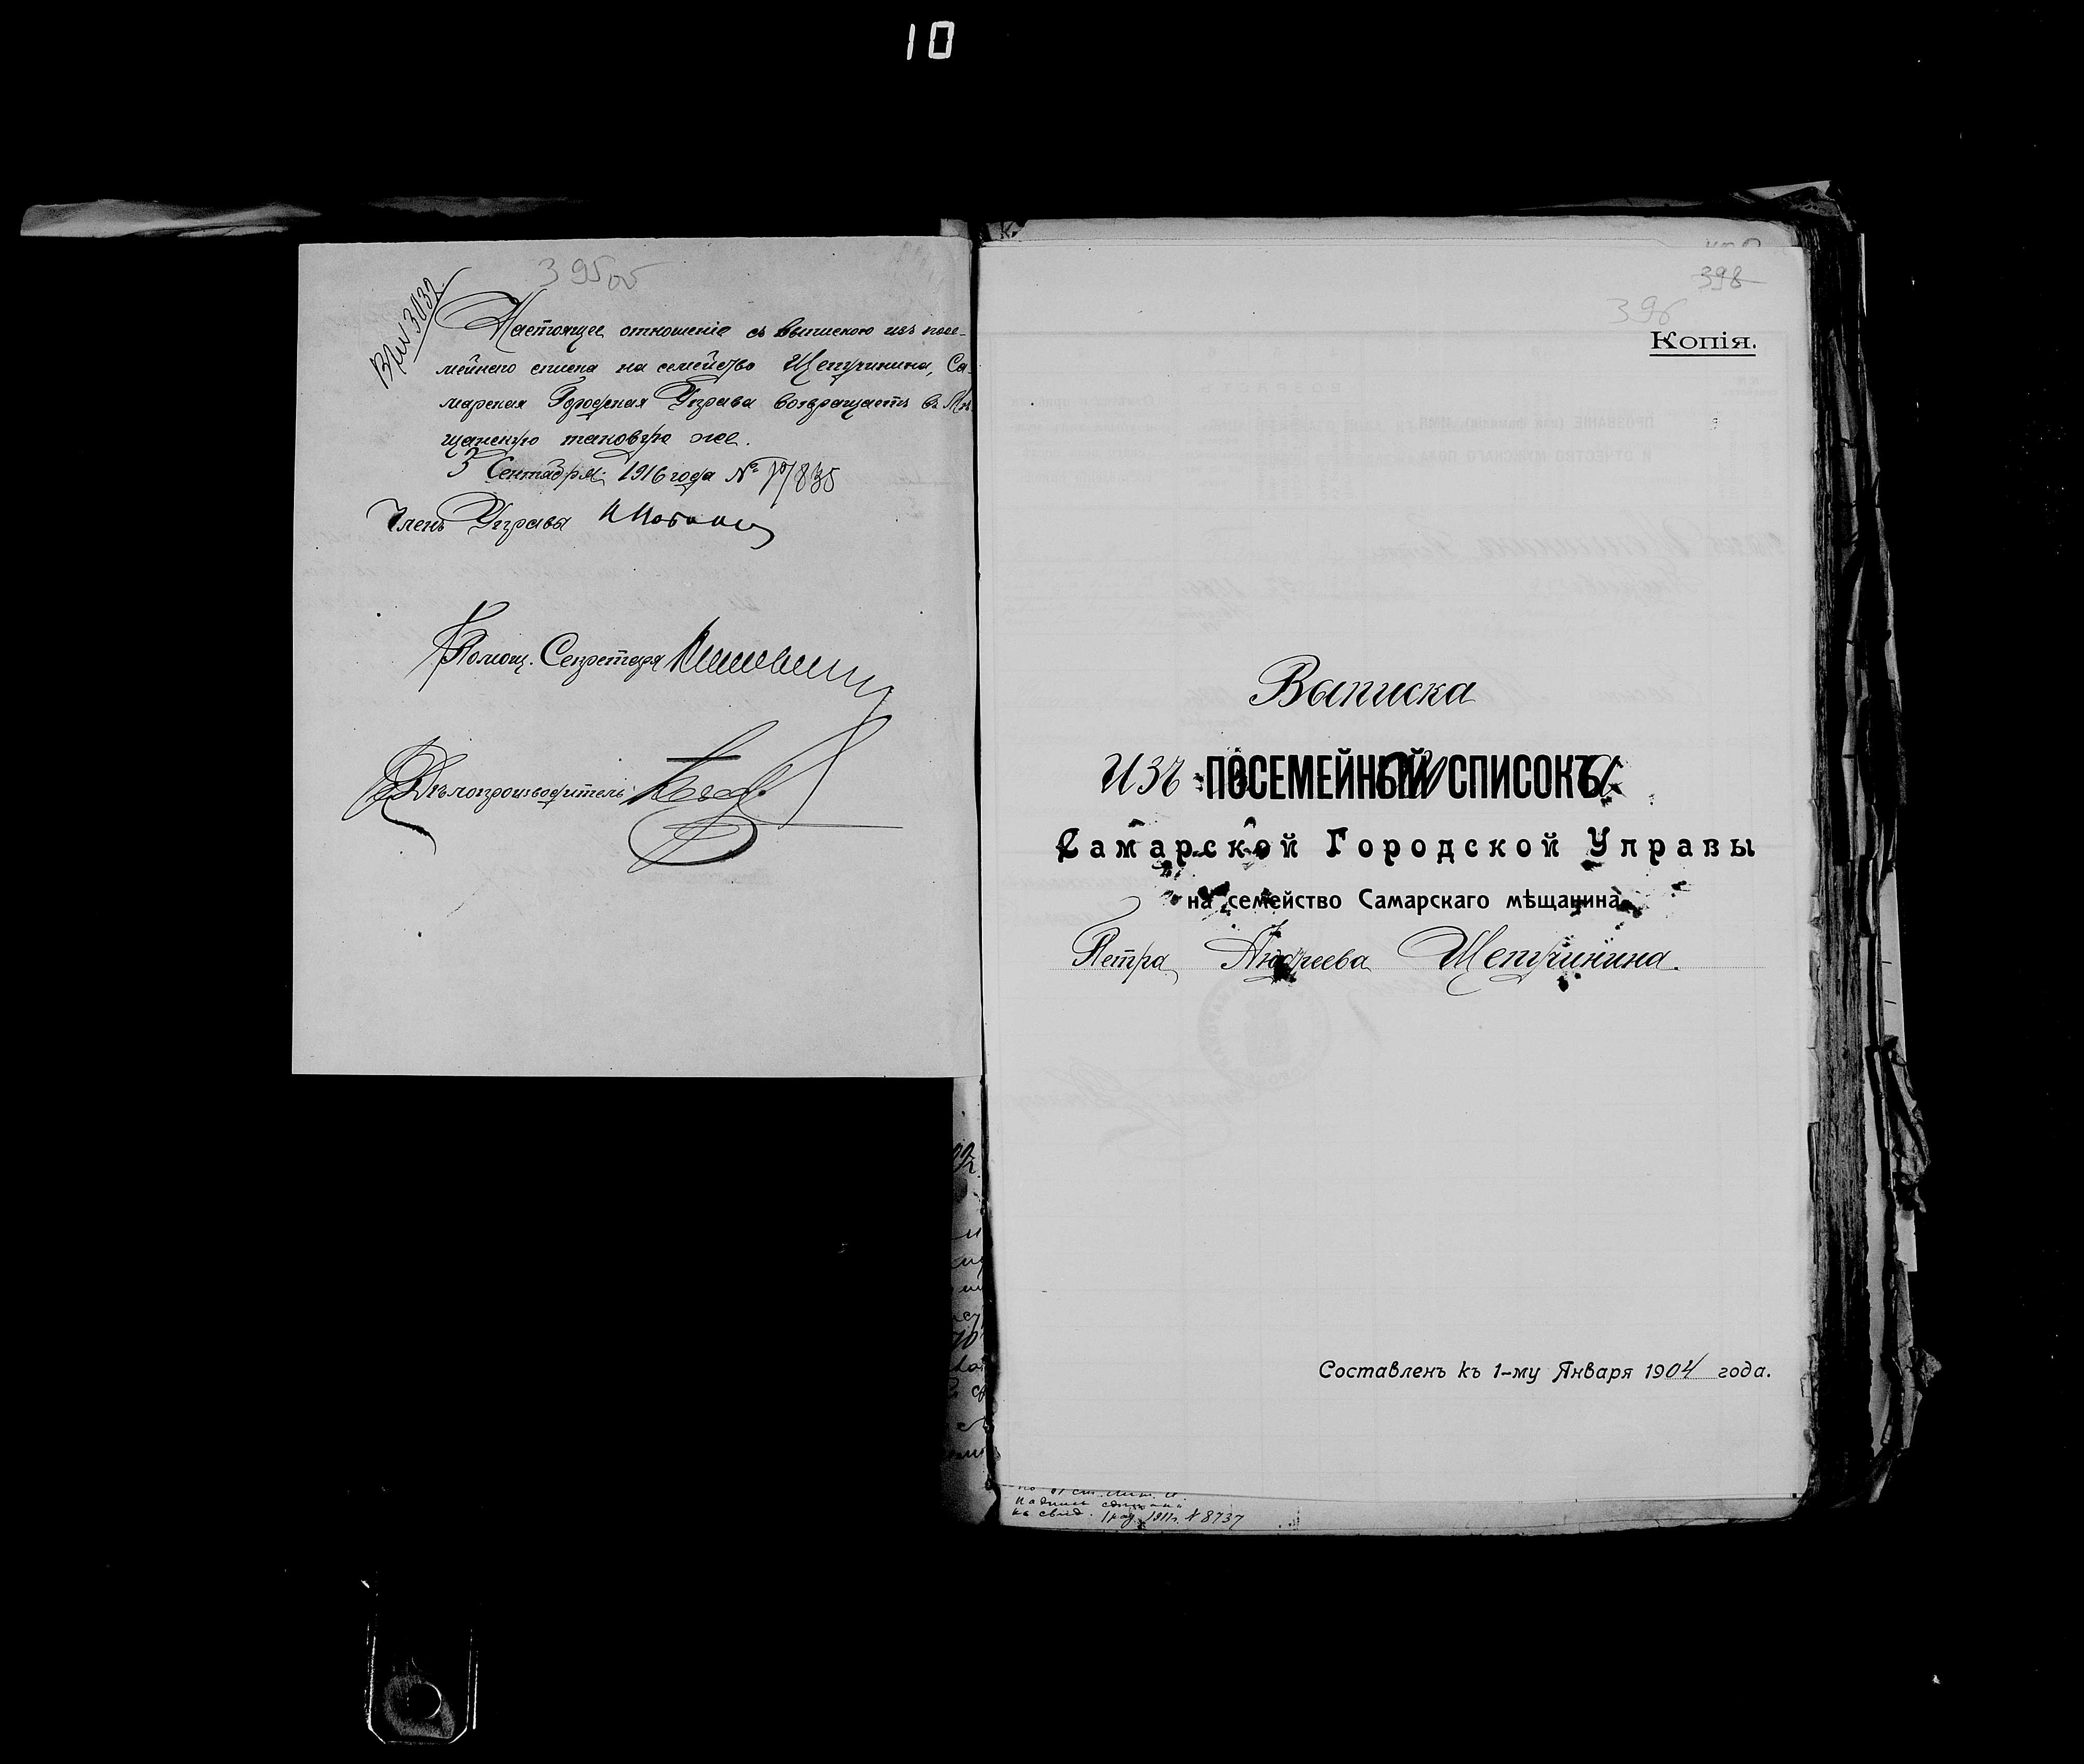 10
395 об
Вх № 3032
Настоящее отношеніе съ выпискою изъ посе-
мейнаго списка на семейство Щепучинина, Са-
марская Городская Управа возвращаетъ въ Мѣ-
щанскую таковую же.
3 Сентября 1916 года №
Членъ Управы
Помощ. Секретаря
Дѣлопроизводитель
398
396
Копія.
Выписка
изъ ПОСЕМЕЙНаго СПИСКа
Самарской Городской Управы
на семейство Самарскаго мѣщанина
Петра Андреева Щепучинина.
Составленъ къ 1-му Января 1904 года.
надпись сдѣлана
на свид. 1911 г. № 8737